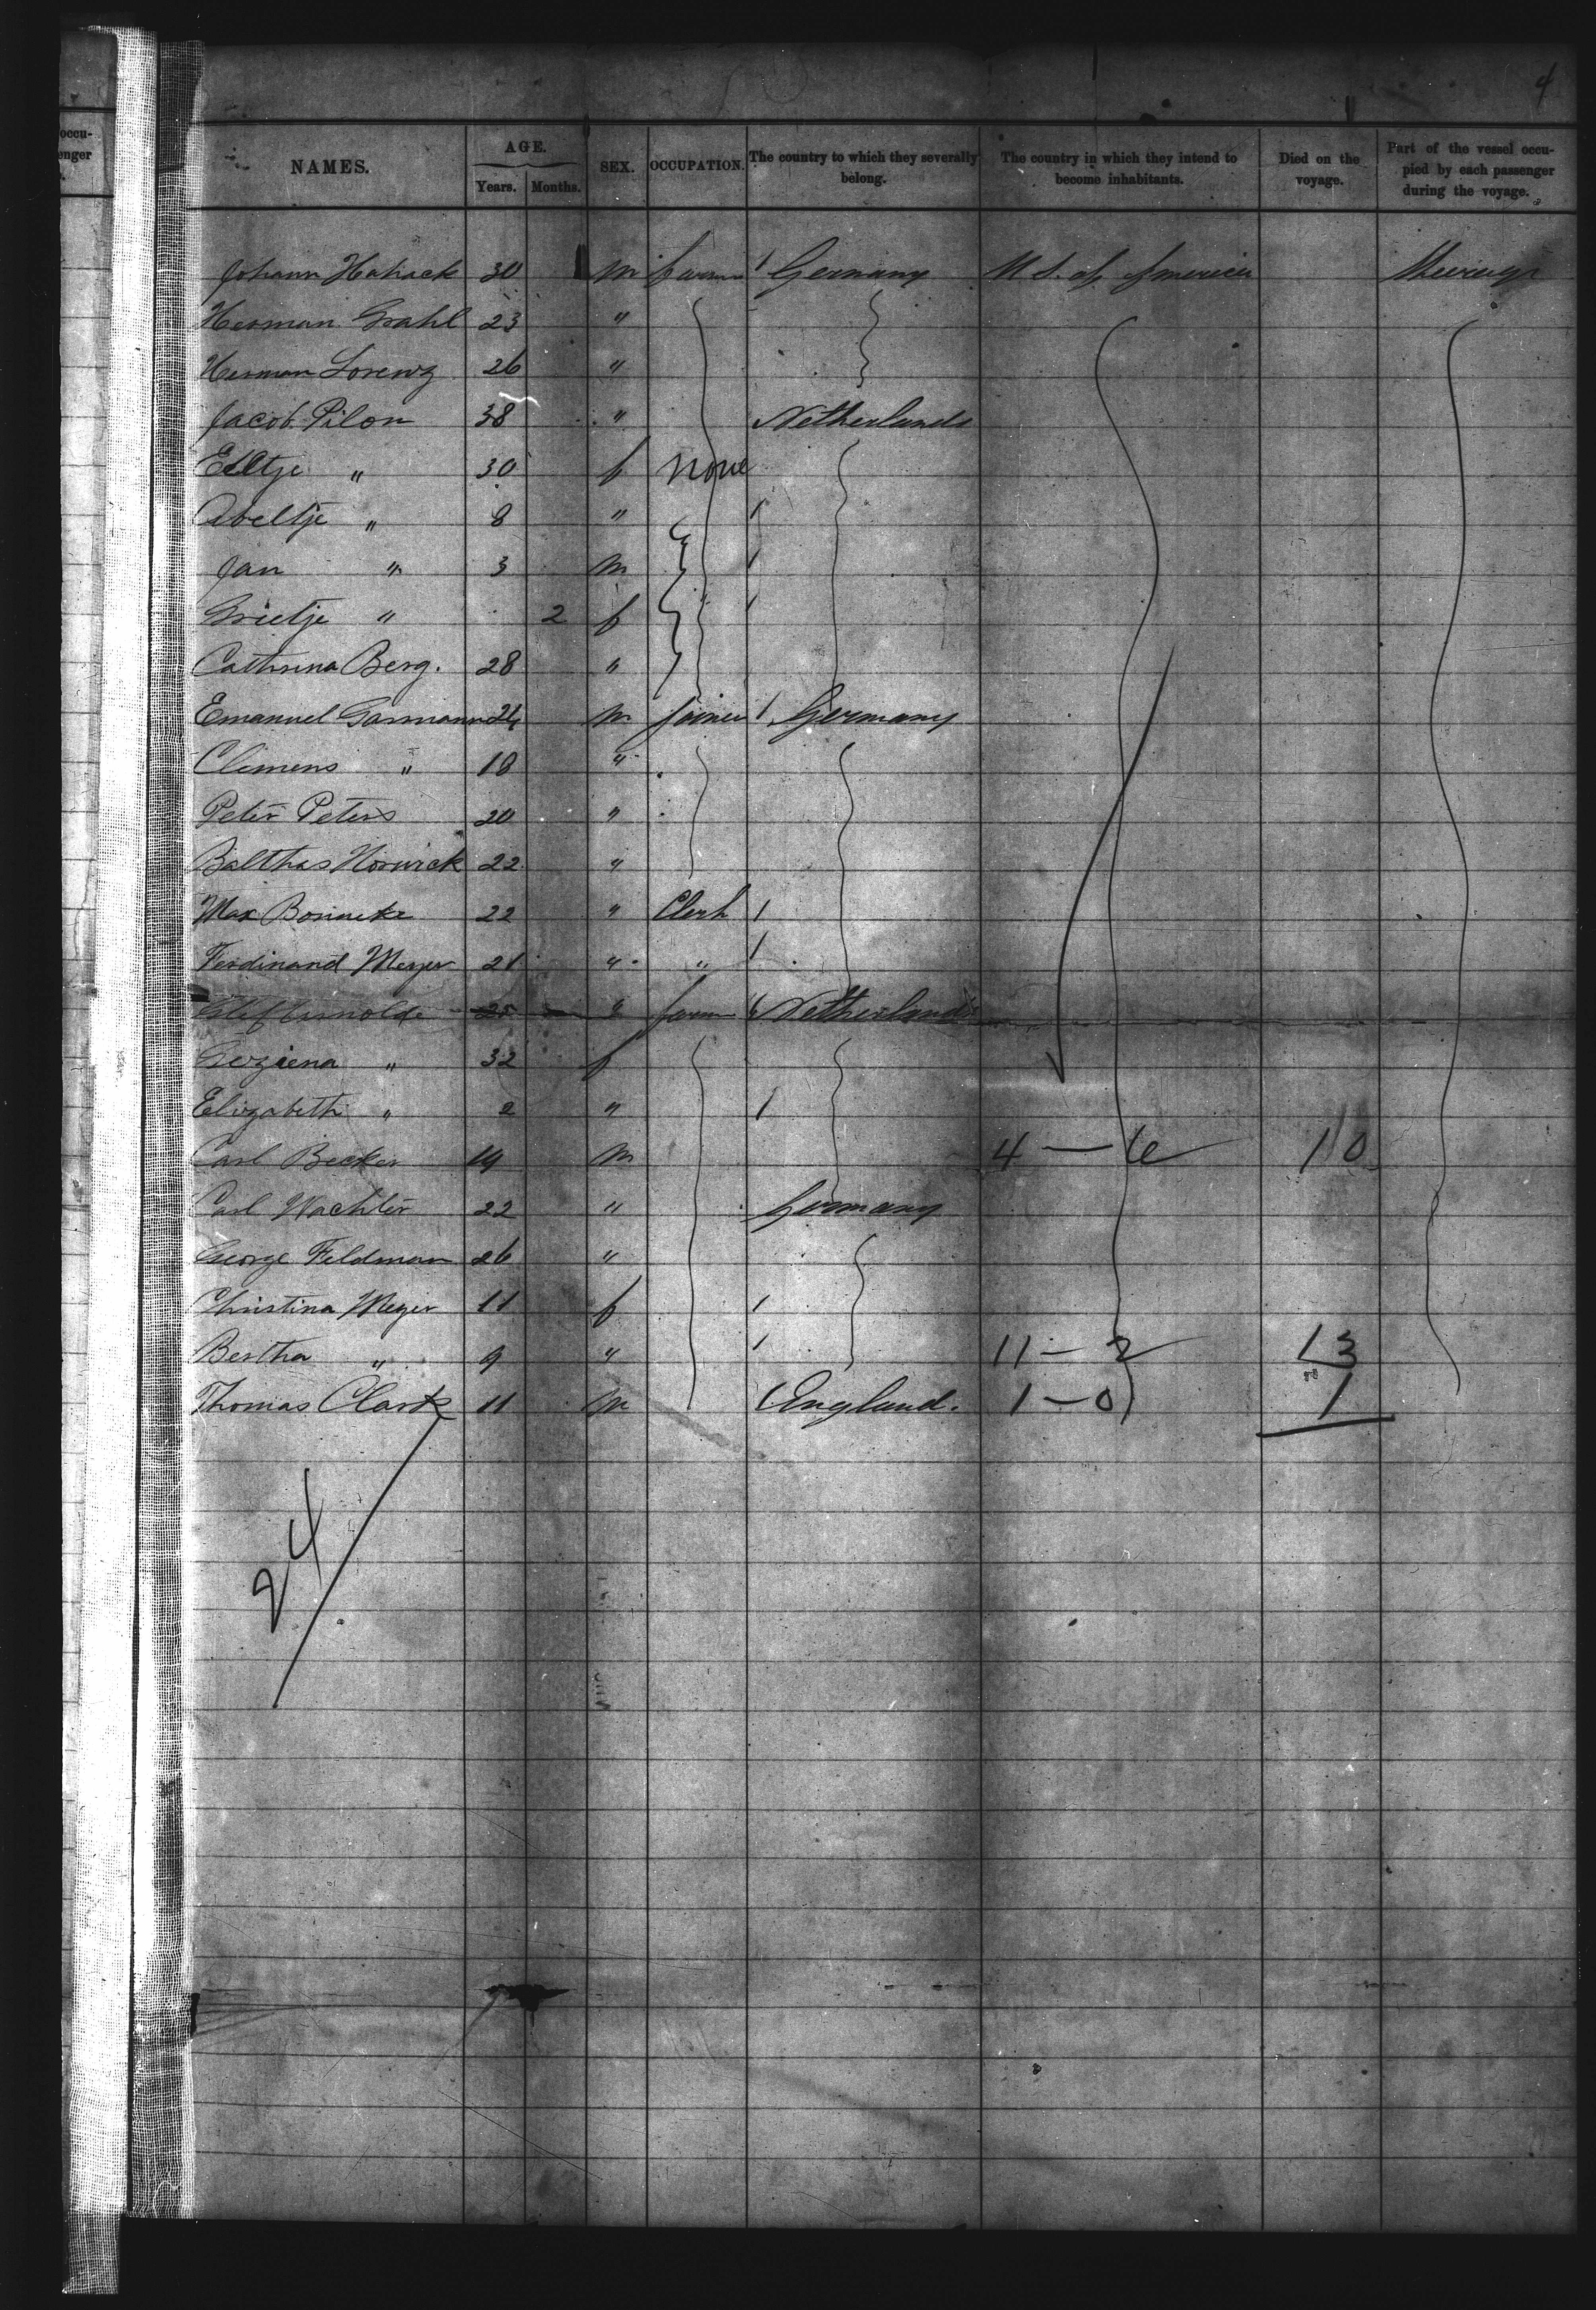 4
occu-
enger
NAMES. AGE. Years. Months. SEX. OCCUPATION. The country to which they severally belong. The country in which they intend to become inhabitants. Died on the voyage. Part of the vessel occu-pied by each passenger during the voyage.
Johann 30 m farm 1 Germany U.S. of America
Herman Grahl 23 "
Herman Lorenz 26 "
Jacob Pilon 38 " Netherlands
Eltje " 30 f none
Abeltje " 8 " 1
Jan " 3 m 1
Grietje " 2 f 1
Cathrina Berg. 28 "
Emanuel Garmann 24 m joiner 1 Germany
Clemens " 18 "
Peter Peters 20 "
Balthas Horwick 22 "
Max Bonneke 22 " Clerk 1
Ferdinand Meyer 21 " " 1
Arnolde 25 " farm Netherlands
Geziena " 32 f
Elizabeth " 2 " 1
Carl Becker 19 m 4 — 6 10
Carl Wachter 22 " Germany
George Feldman 26 "
Christina Meyer 11 f 1
Bertha " 9 " 1 11 — 2 13
Thomas Clark 11 m 1 England. 1 — 0 1
24